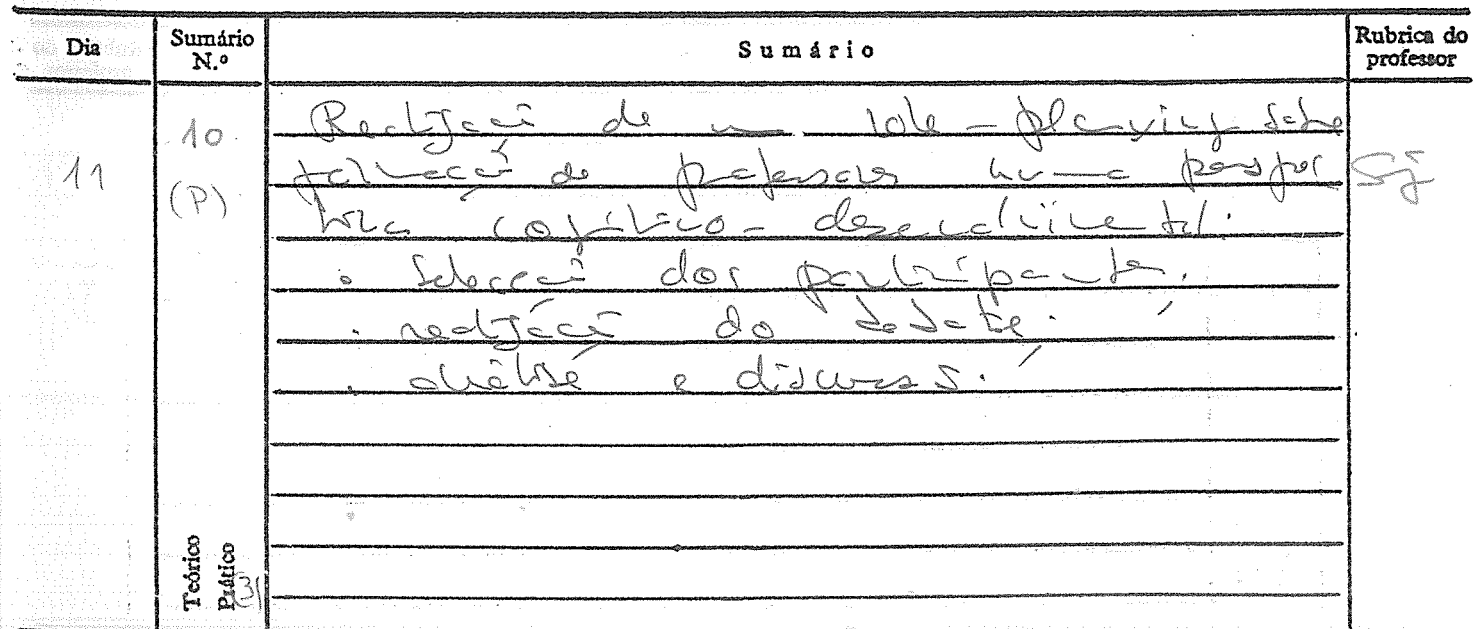 Dia Sumário N.º Sumário Rubrica do professor
11 10 (P)
Realização de um role-playing sobre
formação de professores numa perspec
tiva cognitivo-desenvolvimental.
. Selecção dos participantes.
. realização do debate.
. análise e discussão.
Teórico
Prático (3)